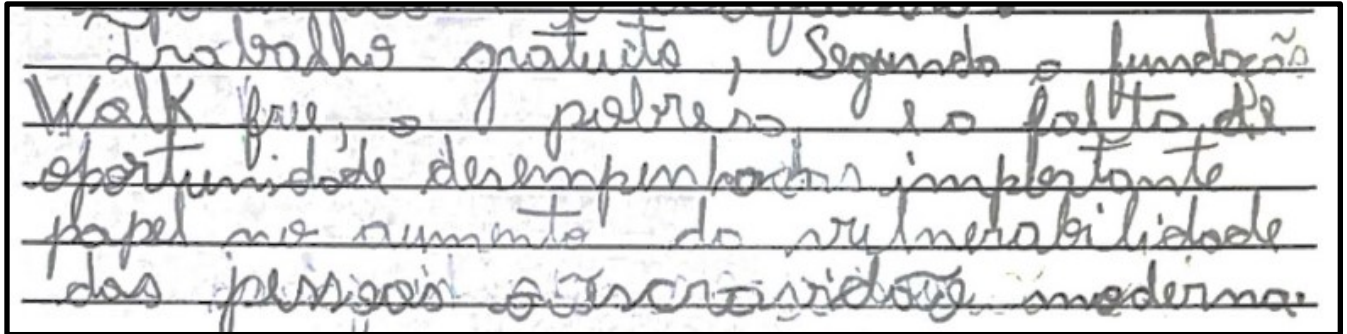 Trabalho gratuito, Segundo a fundação
Walk free, a pobreza e a falta de
oportunidade desempenhadas importante
papel no aumento da vulnerabilidade
das pessoas a escravidão moderna.